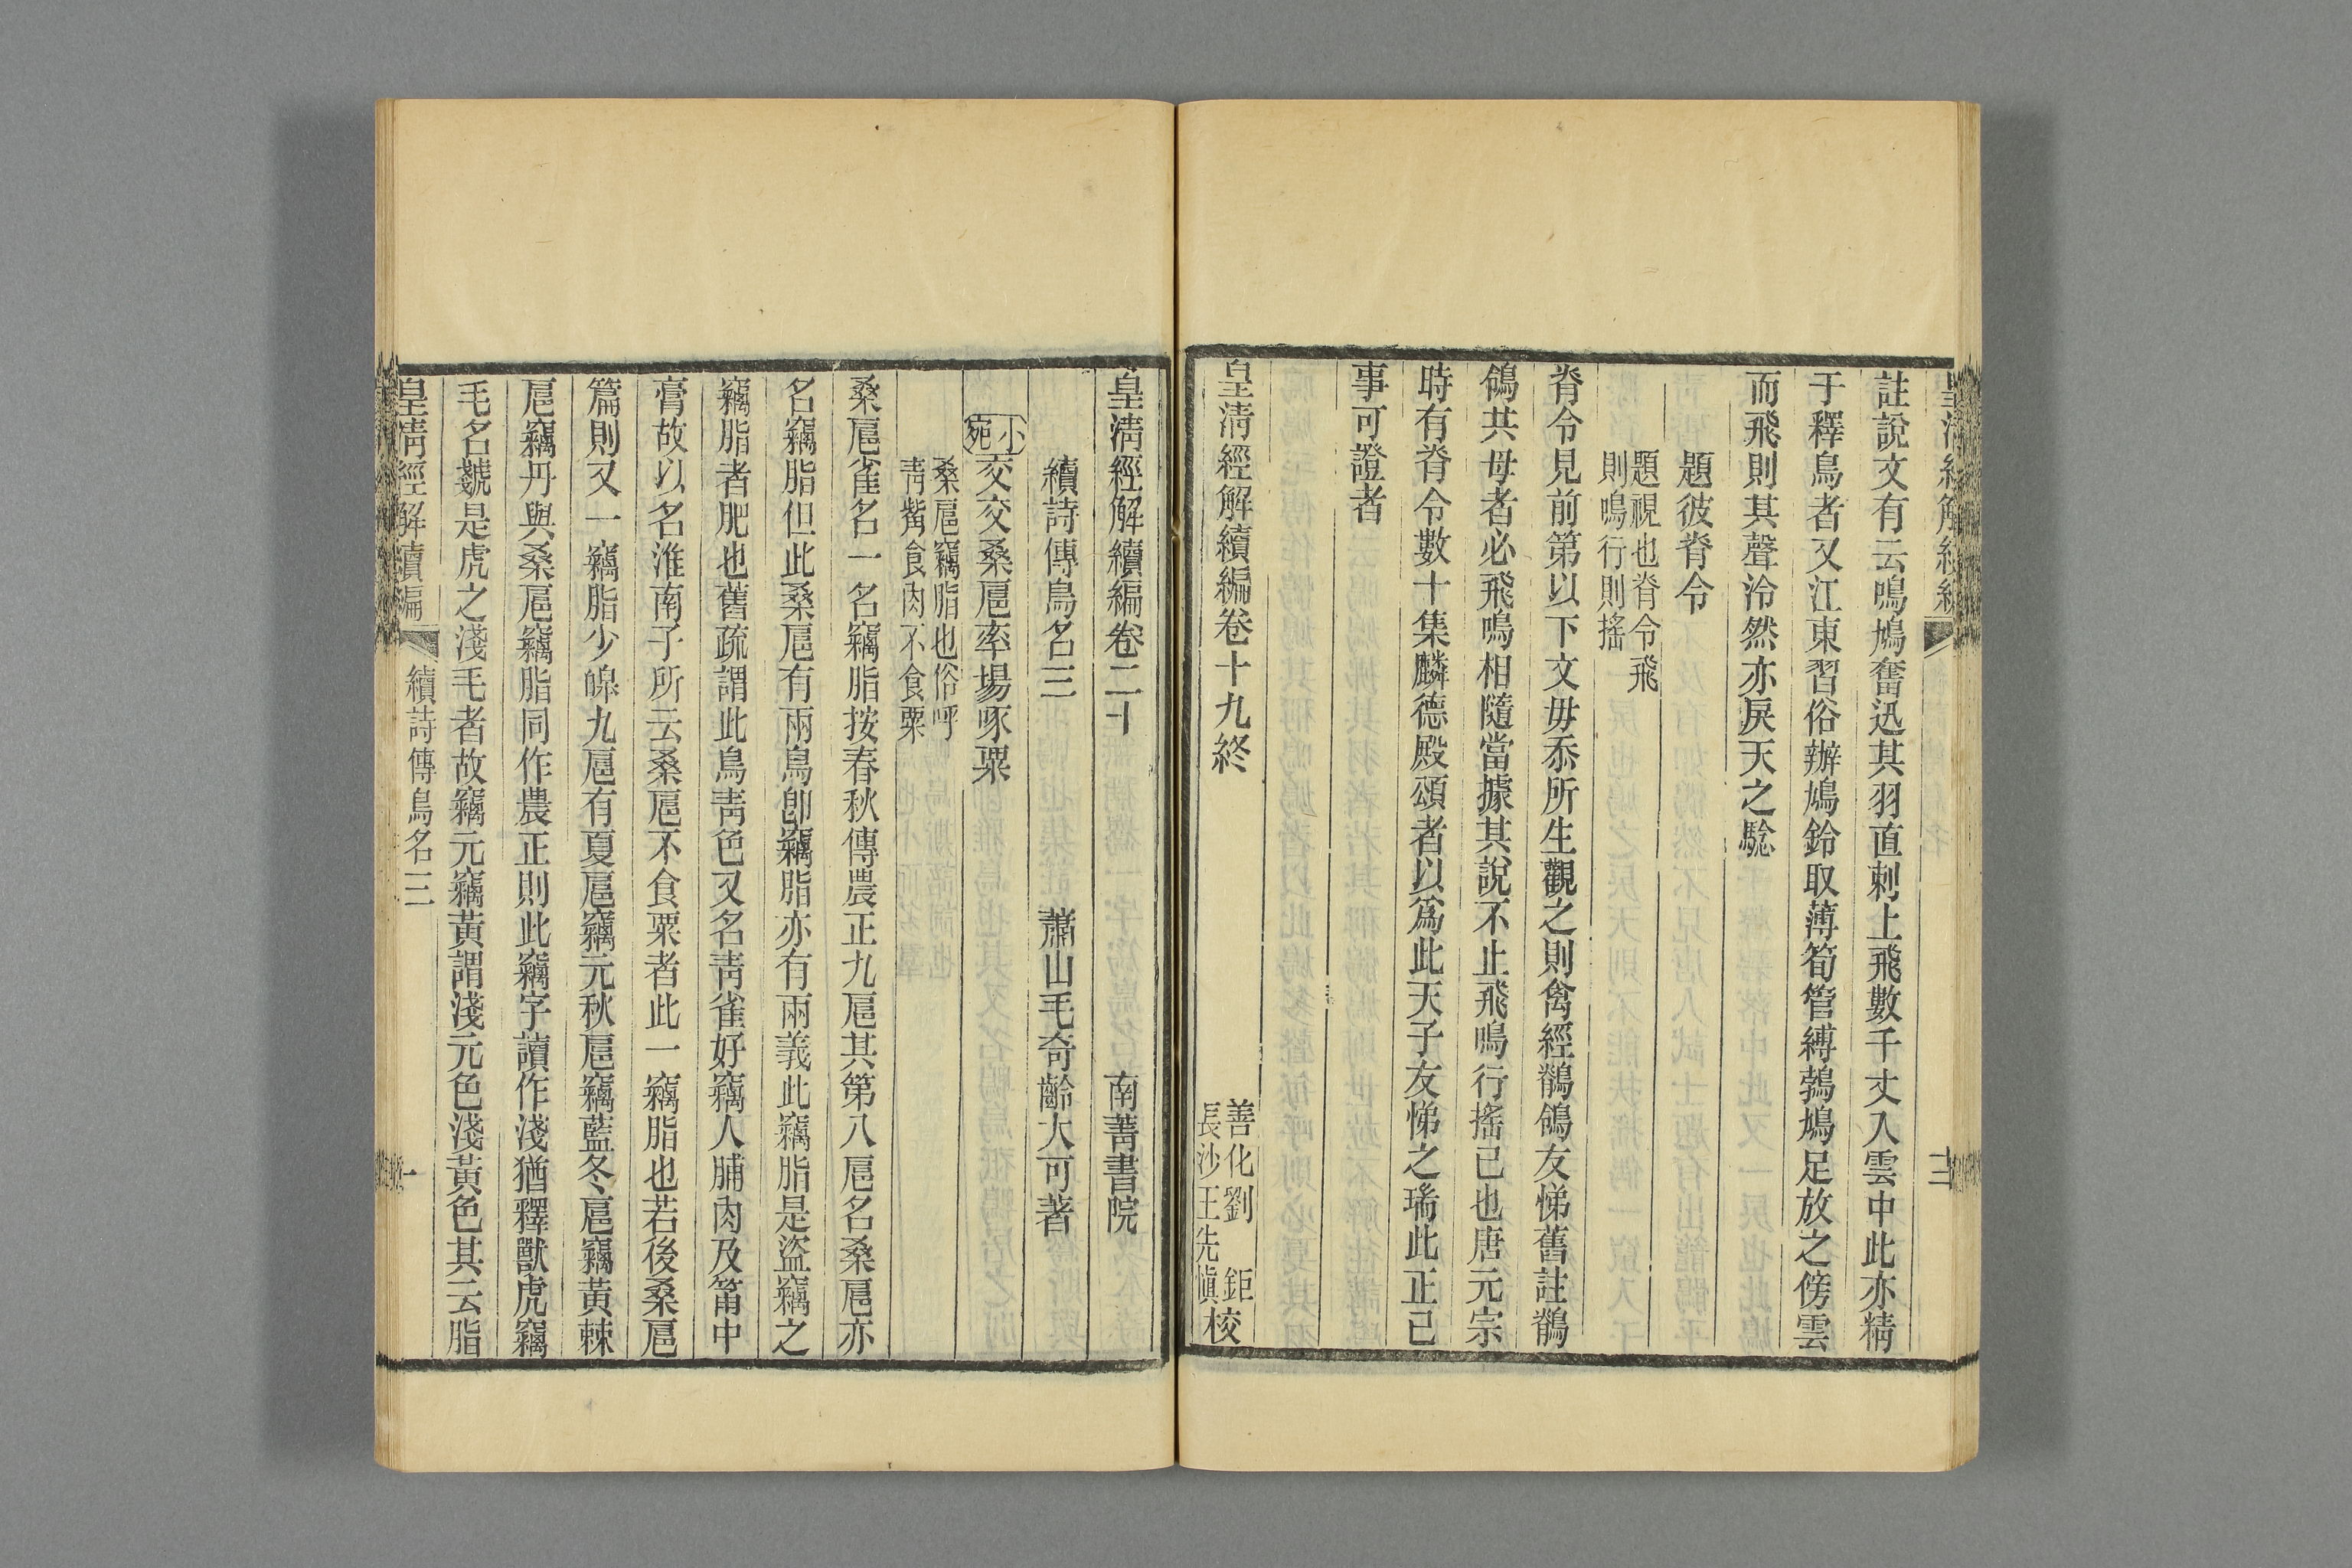 註說文有云鳴鳩奮迅其羽直刺上飛數千丈入雲中此亦精
于釋鳥者又江東習俗辦鳩鈴取薄筍管縛鵓鳩足放之傍雲
而飛則其聲泠然亦戾天之騐
題彼脊令
題視也脊令飛
則鳴行則搖
脊令見前第以下文毋忝所生觀之則禽經鶺鴒友悌舊註鶺
鴒其母者必飛鳴相隨當據其說不止飛鳴行搖已也唐元宗
時有脊令數十集麟德殿頌者以爲此天子友悌之瑞此正已
事可證者
皇淸經解續編卷十九終
善化劉鉅
長沙王先愼校
皇淸經解續編卷二十
南菁書院
續詩傳鳥名三
蕭山毛奇齡大可著
小宛
交交桑扈率場啄粟
桑扈竊脂也俗呼
靑觜食肉不食粟
桑扈雀名一名竊脂按春秋傳農正九扈其第八扈名桑扈亦
名竊脂但此桑扈有兩鳥卽竊脂亦有兩義此竊脂是盜竊之
竊脂者肥也舊疏謂此鳥靑色又名靑雀好竊人脯肉及筩中
膏故以名淮南子所云桑扈不食粟者此一竊脂也若後桑扈
篇則又一竊脂少皥九扈有夏扈竊元秋扈竊藍冬扈竊黃棘
扈竊丹與桑扈竊脂同作農正則此竊字讀作淺猶釋獸虎竊
毛名虦是虎之淺毛者故竊元竊黃謂淺元色淺黃色其云脂
皇淸經解續編
續詩傳鳥名三
一